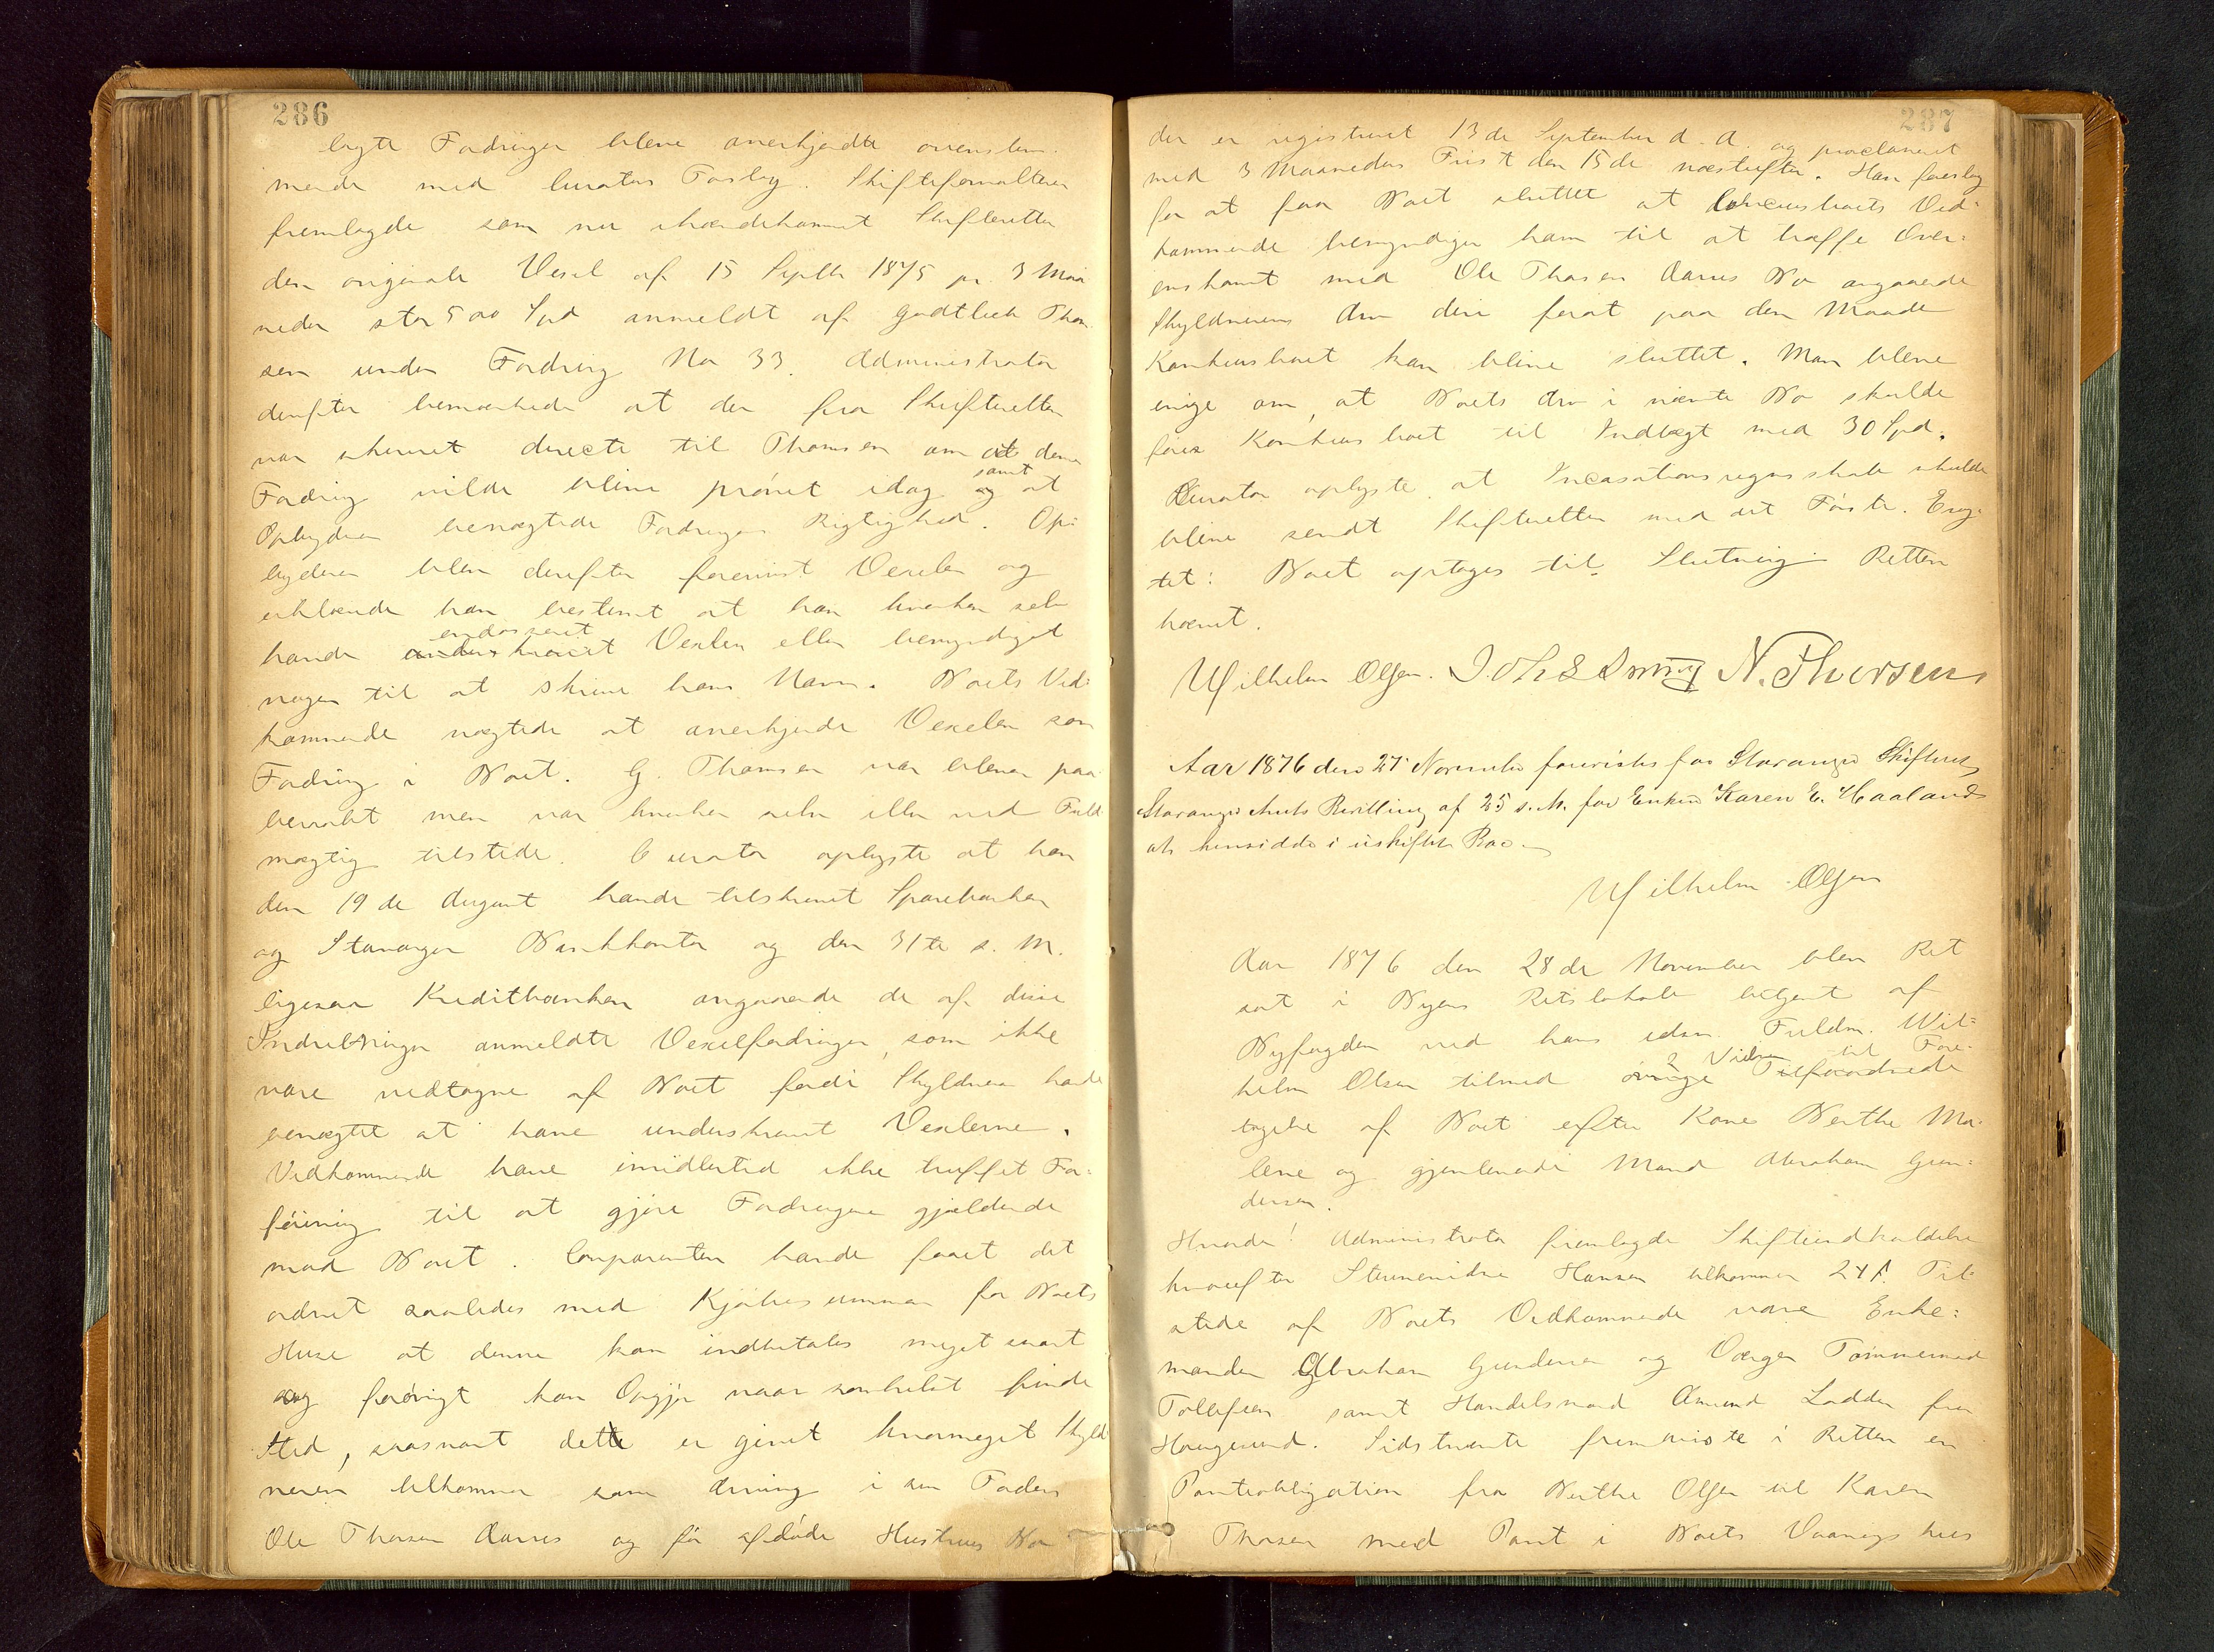 286
lagte Fordringer bleve anerkjendte overenstem-
mende med Curators Forslag. Skifteforvalteren
fremlagde som nu ihændekommet Skifteretten
den originale Vexel af 15 Septbr 1875 pr. 3 Maa
neder stor 500 Spd anmeldt af Godtlieb Thom
sen under Fordring No 33. Administrator
derefter bemærkede at der fra Skifteretten
var skrevet directe til Thomsen om at denne
Fordring vilde blive prøvet idag samt at
Opbyderen benægtede Fordringens Rigtighed. Op-
byderen blev derefter forevist Vexelen og
erklærede han bestemt at han hverken selv
havde endosseret Vexlen eller bemyndiget
nogen til at skrive hans Navn. Boets Ved-
kommende nægtede at anerkjende Vexelen som
Fordring i Boet. G. Thomsen var bleven paa
beraabt men var hverken selv eller ved Fuld
mægtig tilstede. Curator oplyste at han
den 19de August havde tilskrevet Sparebanken
og Stavanger Bankkontor og den 31te s. M.
ligesaa Kreditbanken angaaende de af disse
Indretninger anmeldte Vexelfordringer, som ikke
vare vedtagne af Boet fordi Skyldneren havde
benægtet at have underskrevet Vexlerne.
Vedkommende have imidlertid ikke truffet For-
føining til at gjøre Fordringerne gjældende
mod Boet. Comparenten havde faaet det
ordnet saaledes med Kjøbesummen for Boets
Huse at denne kan indbetales meget snart
og forøvrigt kan Opgjør naarsomhelst finde
Sted, saasnart dette er givet hvormeget Skyld
neren tilkommer som Arving i sin Faders
Ole Thorsen Aarres og før afdøde Hustrues Bo
287
der er registreret 13de September d. A. og proclameret
med 3 Maaneders Frist den 15de næstefter. Han foreslog
for at faa Boet sluttet at Concursboets Ved-
kommende bemyndiger ham til at træffe Over-
enskomst med Ole Thorsen Aarres Bo angaaende
Skyldnerens Arv deri forat paa den Maade
Konkursboet kan blive sluttet. Man bleve
enige om, at Boets Arv i nævnte Bo skulde
føres Konkursboet til Indtægt med 30 Spd.
Curator oplyste at Incassationsregnskab skulde
blive sendt Skifteretten med det Første. Erag-
tet: Boet optages til Slutning. Retten
hævet.
Wilhelm Olsen. N. Thorsen
Aar 1876 den 27 November forevistes for Stavanger Skifteret
Stavanger Amts Bevilling af 25 s. M. for Enken Karen E. Haaland
at hensidde i uskiftet Bo.
Wilhelm Olsen
Aar 1876 den 28de November blev Ret
sat i Byens Retslokale betjent af
Byfogden ved hans edsv. Fuldm. Wil-
helm Olsen tilmed 2 Vidner til Fore-
tagelse af Boet efter Kone Berthe Ma-
lene og gjenlevende Mand Abraham Gun-
dersen.
Hvorda! Administrator fremlagde Skifteindkaldelse
hvorefter Stevnevidne Hansen tilkommer 24 s. Til-
stede af Boets Vedkommende vare Enke-
manden Abraham Gundersen og Værgen Tømmermand
Tollefsen samt Handelsmand Amund Lodden fra
Haugesund. Sidstnævnte fremviste i Retten en
Panteobligation fra Berthe Olsen til Karen
Thorsen med Pant i Boets Vaaningshus